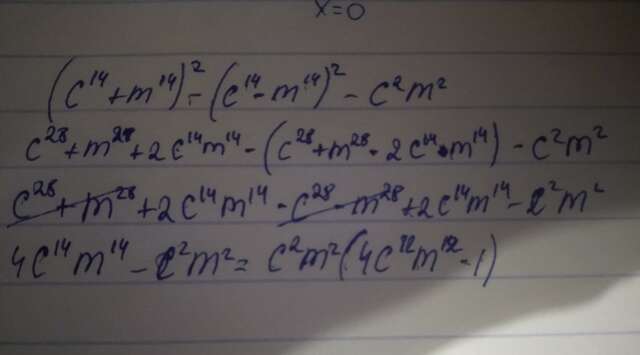 x=0
(c¹⁴+m¹⁴)²-(c¹⁴-m¹⁴)²-c²m²
c²⁸+m²⁸+2c¹⁴m¹⁴-(c²⁸+m²⁸-2c¹⁴·m¹⁴)-c²m²
c²⁸+m²⁸+2c¹⁴m¹⁴-c²⁸-m²⁸+2c¹⁴m¹⁴-c²m²
4c¹⁴m¹⁴-c²m²=c²m²(4c¹²m¹²-1)